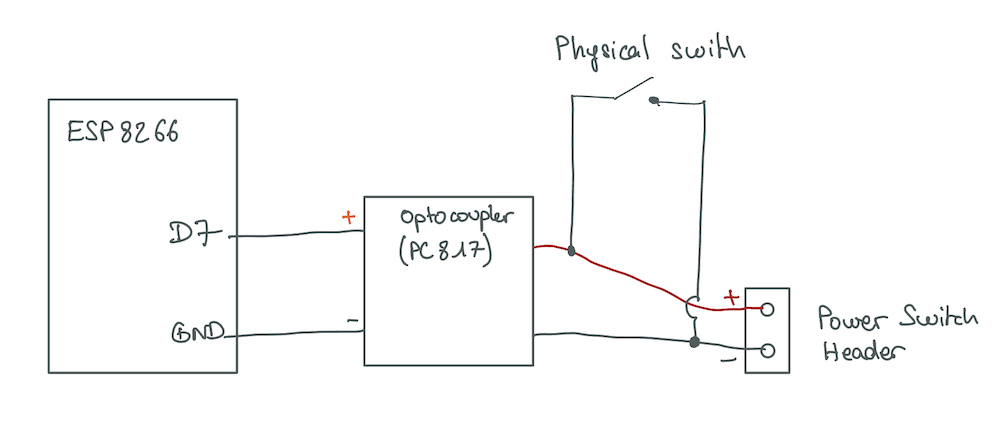 Physical swith
ESP8266
D7
+
Optocoupler
(PC817)
GND
-
+
-
Power Switch
Header